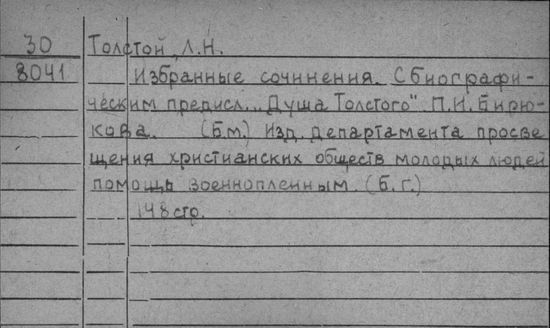 30 Толстой, Л.Н.
8041 Избранные сочинения. С биографи-
ческим предисл. „Душа Толстого" П.И. Бирю-
кова. (Б.м.) Изд. департамента просве
щения христианских обществ молодых людей
помощь военнопленным. (Б.г.)
148 стр.